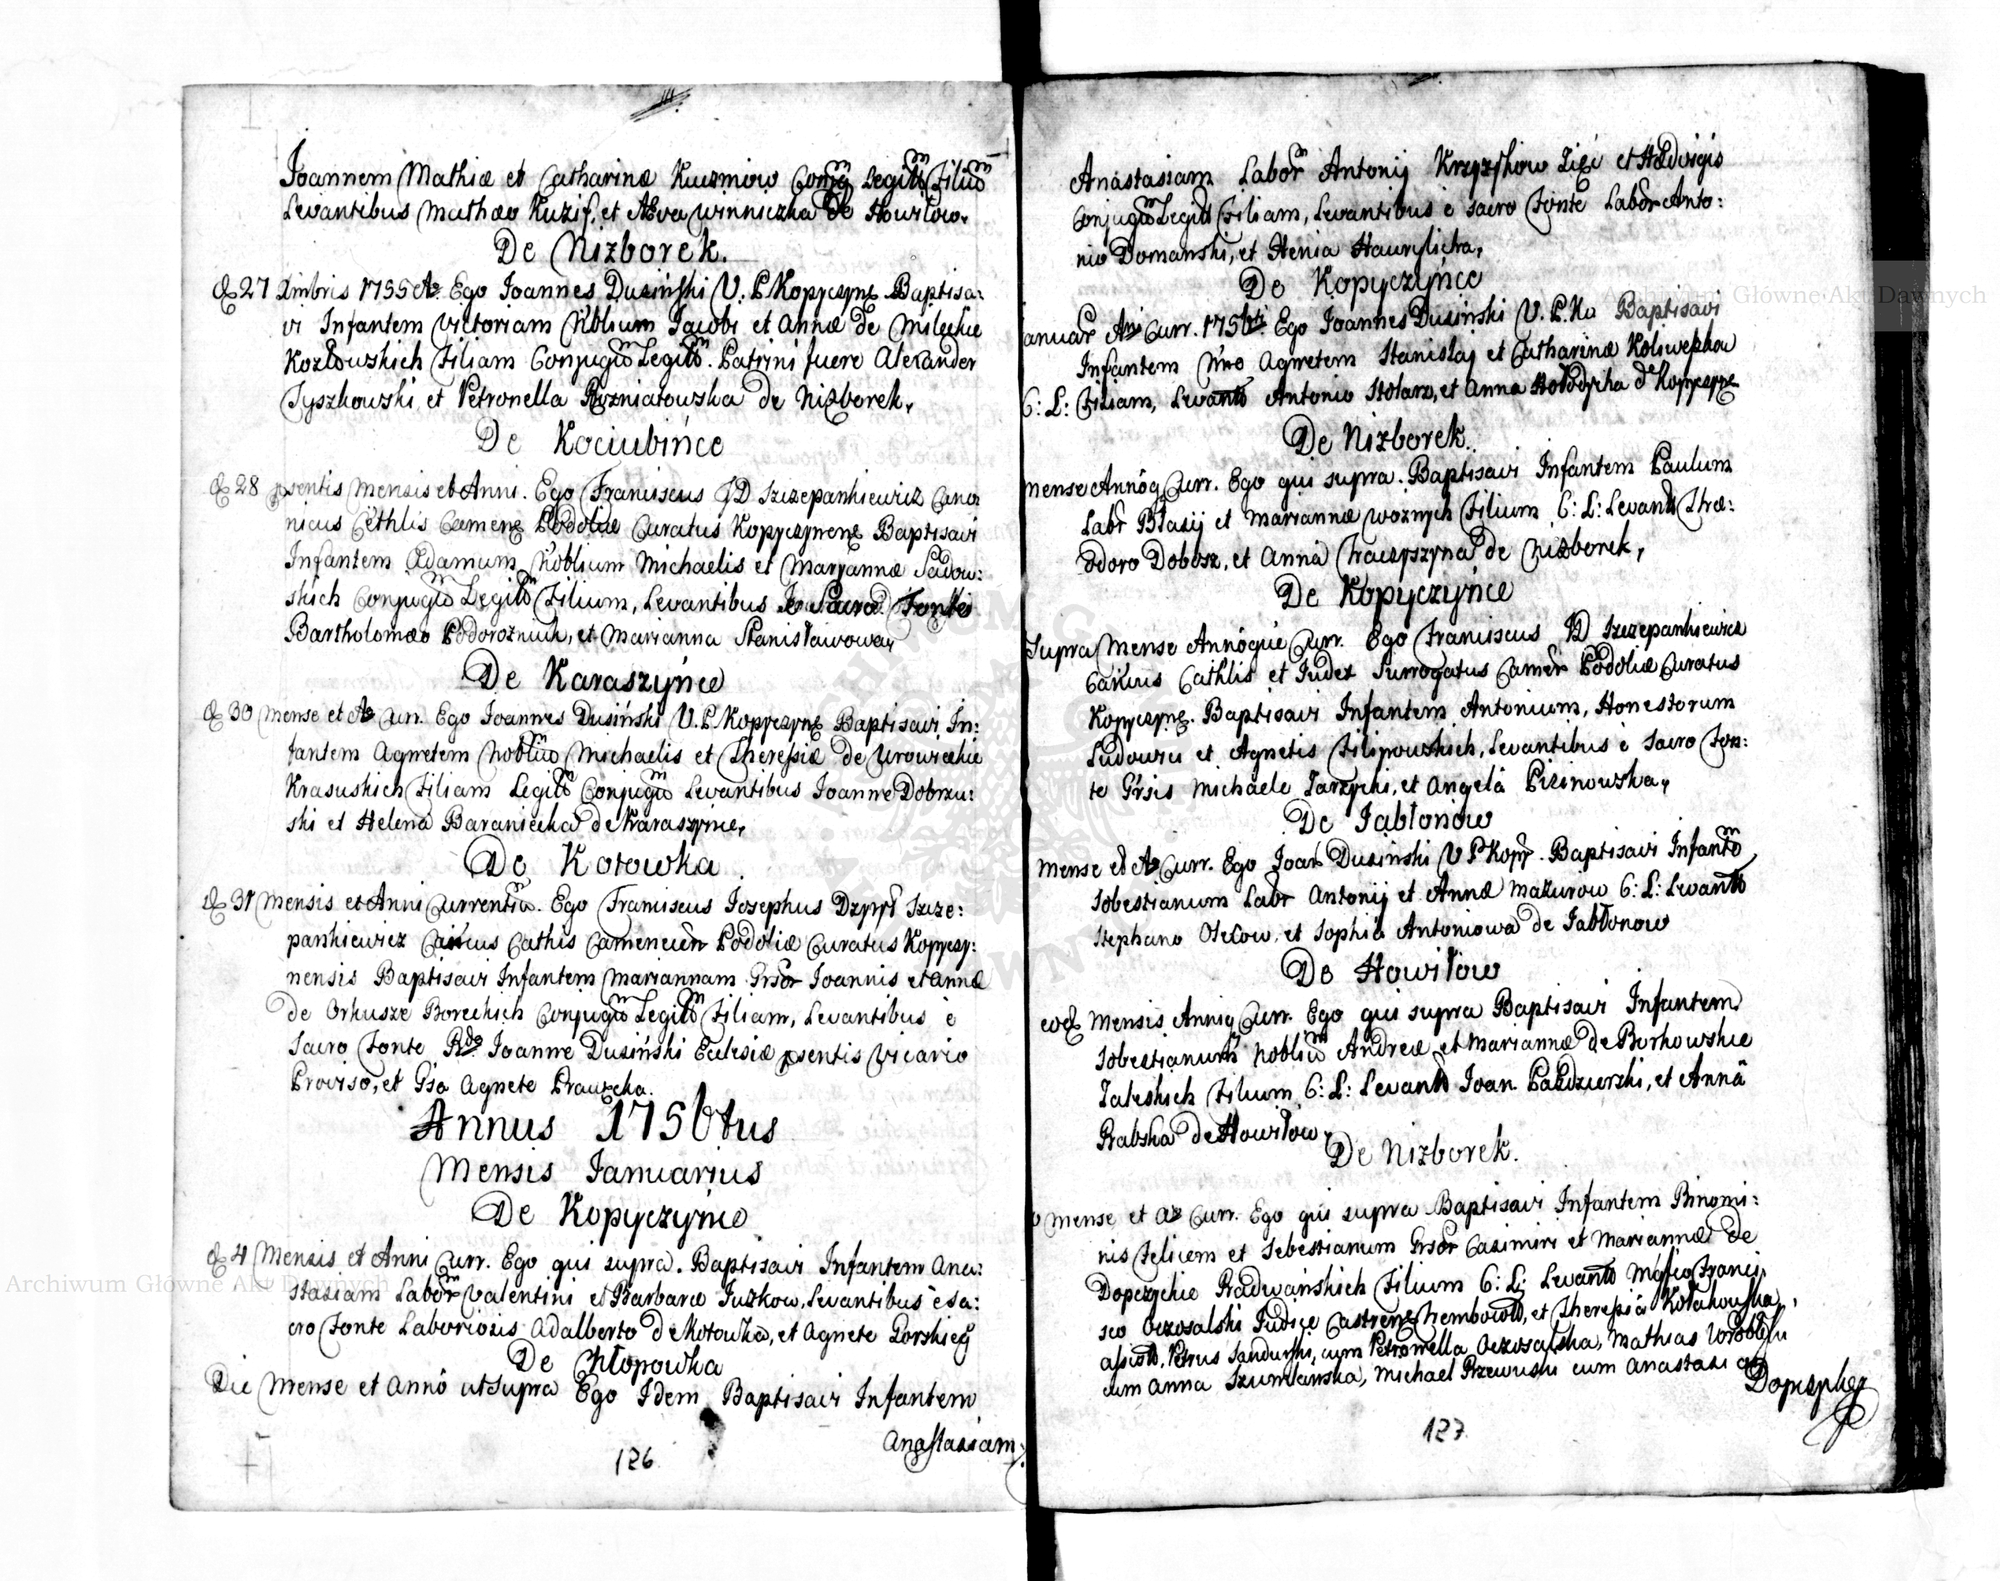 Joannem Mathiæ et Catharinæ Kuzmiow Conjg Legitt Filiu
Levantibus Mathæo Kuzif, et Aeva Winniczka de Howilow.
De Nizborek.
D 27 Xmbris 1755 Ao. Ego Joannes Dusiński V. P. Kopyczyn. Baptisa:
vi Infantem Victoriam Nblium Jacobi et Annæ de Mileckie
Kozłowskich Filiam Conjugu Legitt. Patrini fuere Alexander
Tyszkowski et Petronella Rozniatowska de Nizborek.
De Kociubińce
D 28 psentis Mensis et Anni. Ego Franciscus JD Szczepankiewicz Cano
nicus Cethlis Camene Podoliæ Curatus Kopyczynen Baptisavi
Infantem Adamum Noblium Michaelis et Maryannæ Sadow:
skich Conjugu Legitt Filium, Levantibus Sacro Fonte
Bartholomæo Podorożniuk, et Marianna Stanisławowa
De Karaszyńce
D 30 Mense et Ao Curr. Ego Joannes Dusiński V. P. Kopyczyn Baptisavi In:
fantem Agnetem Nobliu Michaelis et Theressiæ de Urowieckie
Krasuskich Filiam Legitt Conjugu Levantibus Joanne Dobrzu:
ski et Helena Baraniecka de Karaszynie,
De Kotowka
D 31 Mensis et Anni Currentis. Ego Franciscus Josephus Szcze:
pankiewicz Cathis Camenecen Podoliæ Curatus Kopyczy:
nensis Baptisavi Infantem Mariannam Gnsor Joannis et Annæ
de Orkusze Boreckich Conjugu Legitt Filiam, Levantibus è
Sacro Fonte Rdo Joanne Dusiński Eclesiæ psentis Vicario
Proviso, et Gsa Agnete Prawecka.
Annus 1756tus
Mensis Januarius
De Kopyczynce
D 4 Mensis et Anni Curr. Ego qui supra. Baptisavi Infantem Ana:
stasiam Labor Valentini et Barbaræ Juzkow, Levantibus è sa:
cro Fonte Laboriosis Adalberto de Kotowka, et Agnete Gorskieg
De Chłopowka
Die Mense et Anno ut Supra Ego Idem Baptisavi Infantem
Anastasiam
126
Anastasiam Labor Antonij Krzyszkow Zięć et Hedvigis
Conjugu Legitt Filiam, Levantibus è sacro Fonte Labor Anto:
nio Domanski, et Henia Haurylicha,
De Kopyczynce
Januar Ani Curr. 1756ti. Ego Joannes Dusiński V. P. Ko Baptisavi
Infantem Agnetem Stanislaj et Catharinæ Koliwepkow
C: L: Filiam, Levantb Antonio Stolarz, et Anna Hołodycha de Kopyczyn
De Nizborek.
Mense Annoq Curr. Ego qui supra. Baptisavi Infantem Paulum
Labr Blasij et Mariannæ Woznych Filium C: L: Levantb Thæ:
odoro Dobosz, et Anna Tkaczyszyna de Nizborek,
De Kopyczyńce
Supra Mense Annóque Curr. Ego Franciscus JD Szczepankiewicz
Cathlis et Judex Surrogatus Camen Podoliæ Curatus
Kopyczyn. Baptisavi Infantem Antonium, Honestorum
Ludovici et Agnetis Filipowskich, Levantibus è Sacro Fon:
te Gsis Michaele Jarzycki, et Angela Pisinowska,
De Jabłonow
Mense et Ao Curr. Ego Joan Dusinski V P Kopy. Baptisavi Infant
Sobestianum Labr Antonij et Annæ Mazurow C: L: Levantb
Stephano Olexow, et Sophia Antoniowa de Jabłonow
De Howiłow
eod Mensis Anniq Curr. Ego qui supra Baptisavi Infantem
Sobestianum Nobliu Andreæ et Mariannæ de Borkowskie
Zaleskich Filium C: L: Levantb Joan Pazdzierski, et Anna
Rabska de Howiłow,
De Nizborek.
Mense et Ao Curr. Ego qui supra Baptisavi Infantem Binomi:
nis Felicem et Sebestianum Gnsor Casimiri et Mariannæ de
Dopczyckie Radwańskich Filium C: L: Levantb Mgfico Franci:
sco Oczosalski Judice Castren Trembowl, et Theressia Kołakowska,
assistb, Petrus Sandurski, cum Petronella Oczosalska, Mathias Wrobl
cum Anna Szumlanska, Michael Przewuski cum Anastasi
127
Archiwum Główne Akt Dawnych
Archiwum Główne Akt Dawnych